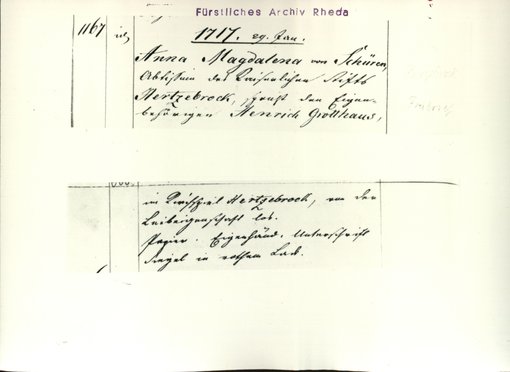 Fürstliches Archiv Rheda
1167
1717. 29. Jan.
Anna Magdalena von Schüren,
Abtissin des Kaiserlichen Stifts
Hertzebrock, spricht den Eigen-
behörigen Henrich Grotthaus,
im Kirchspiel Hertzebrock, von der
Leibeigenschaft los.
Papier. Eigenhänd. Unterschrift
Siegel in rothem Lack.